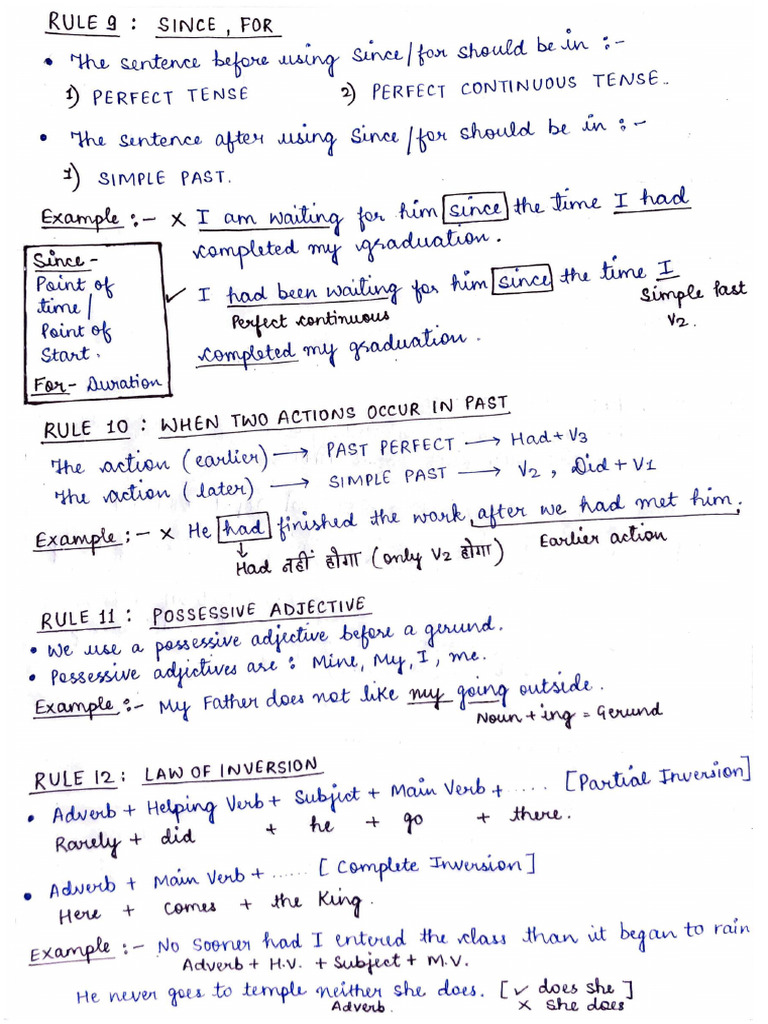 RULE 9 : SINCE, FOR
• The sentence before using since/for should be in :-
1) PERFECT TENSE 2) PERFECT CONTINUOUS TENSE..
• The sentence after using since/for should be in :-
1) SIMPLE PAST.
Example :- × I am waiting for him since the time I had
completed my graduation.
Since -
Point of
time/
Point of
Start.
For - Duration
✓ I had been waiting for him since the time I
Perfect continuous
Simple Past
V2.
completed my graduation.
RULE 10 : WHEN TWO ACTIONS OCCUR IN PAST
The action (earlier) → PAST PERFECT → Had + V3
The action (later) → SIMPLE PAST → V2, Did + V1
Example :- × He had finished the work, after we had met him.
↓ Earlier action
Had नहीं होगा (only V2 होगा)
RULE 11 : POSSESSIVE ADJECTIVE
• We use a possessive adjective before a gerund.
• Possessive adjictives are : Mine, My, I, me.
Example :- My Father does not like my going outside.
Noun + ing = Gerund
RULE 12 : LAW OF INVERSION
• Adverb + Helping Verb + Subject + Main Verb + ..... [Partial Inversion]
Rarely + did + he + go + there.
• Adverb + Main Verb + ...... [Complete Inversion]
Here + Comes + the King.
Example :- No Sooner had I entered the class than it began to rain
Adverb + H.V. + Subject + M.V.
He never goes to temple neither she does. [✓ does she]
Adverb. × she does